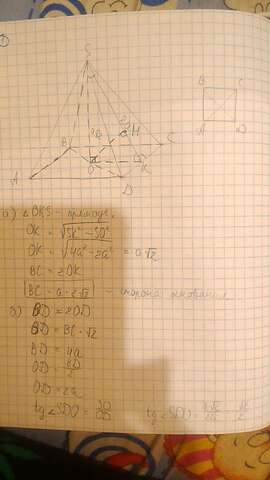 S
B
C
A
D
M
B
C
A
O
K
D
а) ∠OKS - прямоуг.
OK = √SK² - SO²
OK = √4a² - 2a² = a√2
BC = 2OK
BC = a · 2√2 - сторона основания
BD = 2OD
BD = BC · √2
BD = 4a
OD = BD
OD = 2a
tg ∠SDO = SO/OD tg ∠SDO =